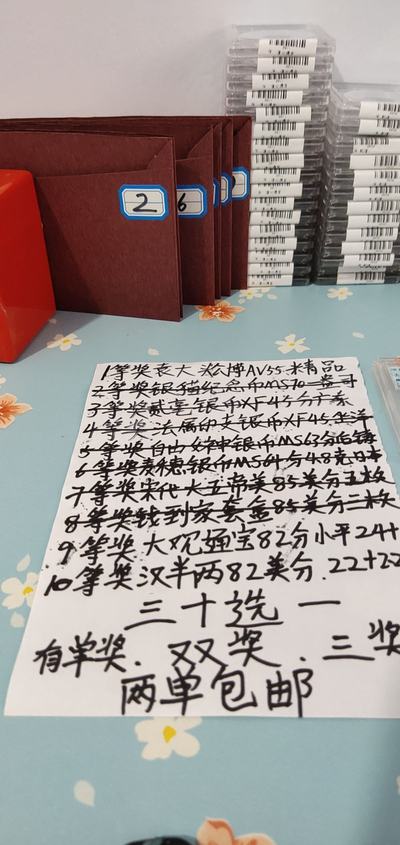 2
6
1等奖袁大 公博AV55.精品
2等奖银猫纪念币MS70一盎司
3等奖贰毫银币XF45分广东
4等奖法属印支银币XF45
5等奖自由女神银币MS63分
6等奖 银币MS64分4.8克日本
7等奖宋代大五帝美85美分五枚
8等奖钱到家套盒85美分三枚
9等奖大观通宝82分小平24+
10等奖汉半两82美分.22+22
三十选一
有单奖.双奖.三奖
两单包邮